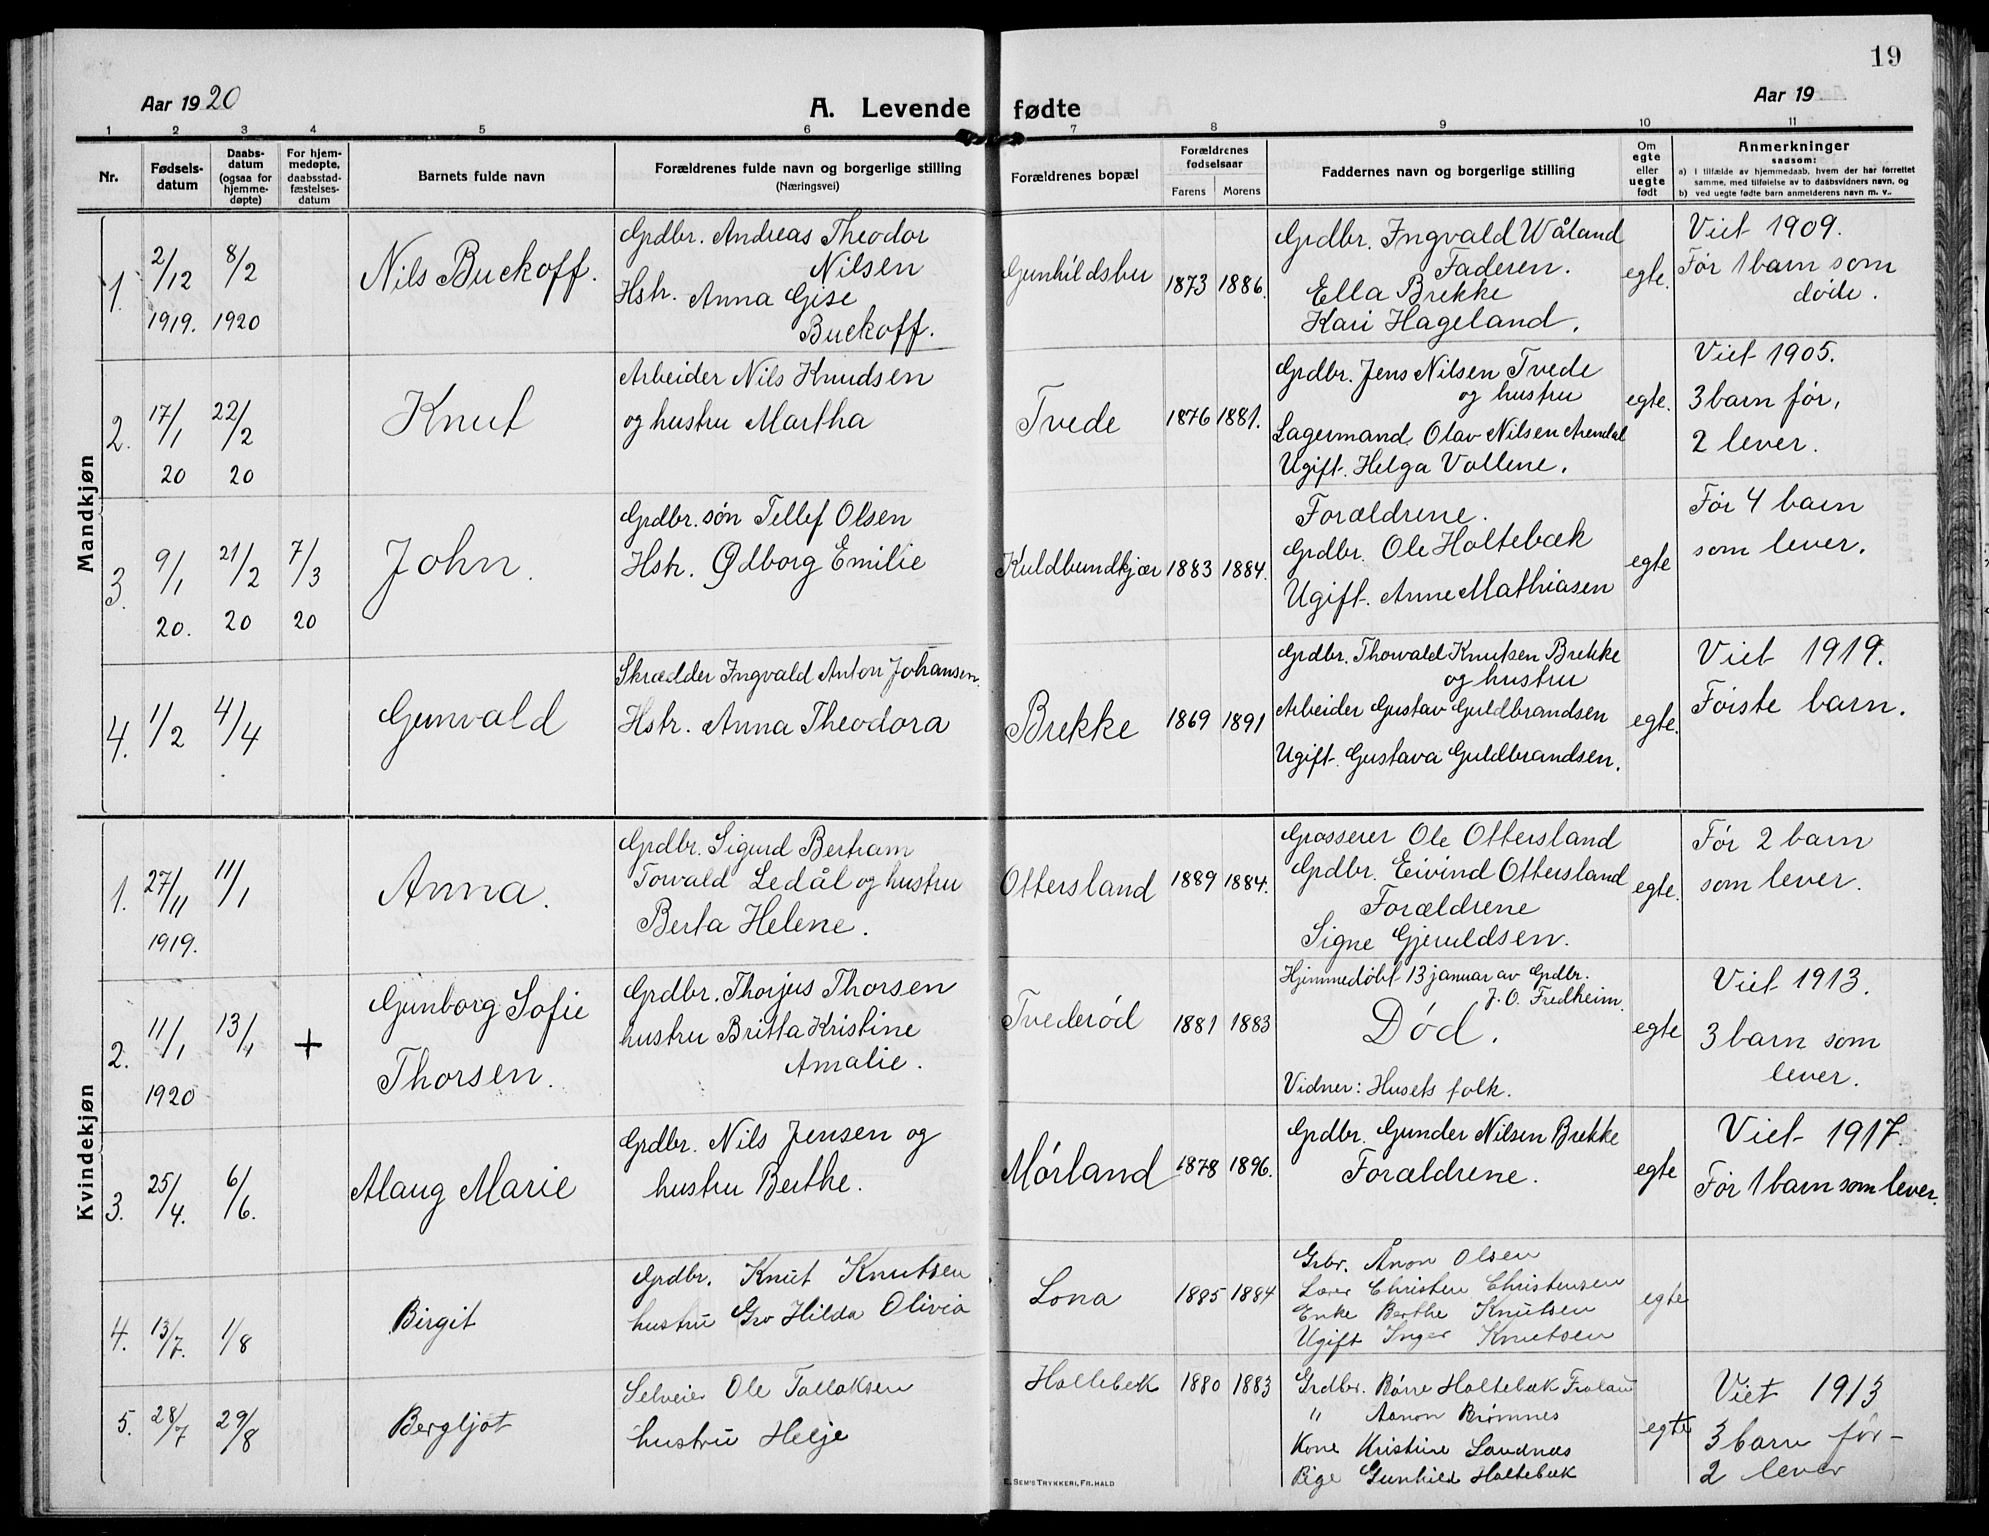 19
Aar 1920
A. Levende fødte
Aar 19
1 2 3 4 5 6 7 8 9 10 11
Nr.
Fødsels-
datum
Daabs-
datum
(ogsaa for
hjemme-
døpte)
For hjem-
medøpte,
daabsstad-
fæstelses-
datum
Barnets fulde navn
Forældrenes fulde navn og borgerlige stilling
(Næringsvei)
Forældrenes bopæl
Forældrenes
fødselsaar
Farens Morens
Faddernes navn og borgerlige stilling
Om
egte
eller
uegte
født
Anmerkninger
saasom:
a) i tilfælde av hjemmedaab, hvem der har forrettet
samme, med tilføielse av to daabsvidners navn, og
b) ved uegte fødte barn anmelderens navn m. v..
Mandkjøn
1.
2/12
1919.
8/2
1920
Nils Buckoff.
Grdbr. Andreas Theodor
Nilsen
Hstr. Anna Gise
Buckoff.
Gunhildsbu
1873 1886.
Grdbr. Ingvald Wåland
Faderen.
Ella Brekke
Kari Hageland.
egte.
Viet 1909.
Før 1 barn som
døde.
2.
17/1
20
22/2
20
Knut
Arbeider Nils Knudsen
og hustru Martha
Tvede
1876 1881.
Grdbr. Jens Nilsen Tvede
og hustru
Lagermand Olav Nilsen Arendal
Ugift. Helga Vollene.
egte.
Viet 1905.
3 barn før,
2 lever.
3.
9/1
20.
21/2
20
7/3
20
John.
Grdbr. søn Tellef Olsen
Hstr. Ødborg Emilie
Kuldbundkjær
1883 1884.
Forældrene.
Grdbr. Ole Holtebæk
Ugift. Anne Mathiasen
egte
Før 4 barn
som lever.
4.
1/2
4/4
Gunvald
Skrædder Ingvald Anton Johansen.
Hstr. Anna Theodora
Brekke
1869 1891
Grdbr. Thorvald Knutsen Brekke
og hustru
Arbeider Gustav Guldbrandsen
Ugift. Gustava Guldbrandsen.
egte.
Viet 1919.
Første barn.
Kvindekjøn
1.
27/11
1919.
11/1
Anna.
Grdbr. Sigurd Bertram
Torvald Ledål og hustru
Berta Helene.
Ottersland
1889 1884.
Grosserer Ole Ottersland
Grdbr. Eivind Ottersland
Forældrene
Signe Gjeruldsen.
egte.
Før 2 barn
som lever.
2.
11/1
1920
13/1
+
Gunborg Sofie
Thorsen.
Grdbr. Thorjus Thorsen
hustru Britta Kristine
Amalie.
Tvederød
1881 1883
Hjemmedøbt 13 januar av Grdbr.
J. O. Fredheim.
Død.
Vidner: Husets folk.
egte
Viet 1913.
3 barn som
lever.
3.
25/4.
6/6.
Alaug Marie
Grdbr. Nils Jensen og
hustru Berthe.
Mørland
1878 1896.
Grdbr. Gunder Nilsen Brekke
Forældrene.
egte
Viet 1917.
Før 1 barn som lever.
4.
13/7.
1/8
Birgit
Grdbr. Knut Knutsen
hustru Gro Hilda Olivia
Lona
1885 1884
Grbr. Ånon Olsen
Lærer Christen Christensen
Enke Berthe Knutsen
Ugift Inger Knutsen
egte
5.
28/7
29/8
Bergljot
Selveier Ole Tallaksen
hustru Helje
Holtebek
1880 1883
Grdbr. Børre Holtebæk
" Aanon Brømnes
Kone Kristine Landnæs
Pige Gunhild Holtebæk
egte
Viet 1913
3 barn før -
2 lever
E. SEM'S TRYKKERI, FR. HALD